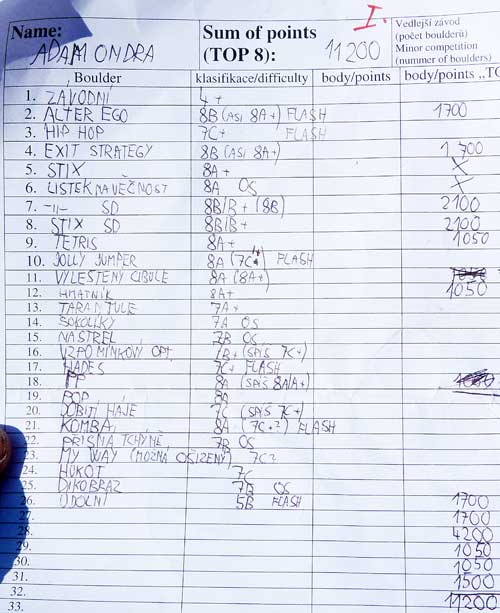 I.
Name: ADAM ONDRA
Sum of points (TOP 8): 11200
Vedlejší závod
(počet boulderů)
Minor competition
(nummer of boulders)
Boulder klasifikace/difficulty body/points body/points „TO
1. ZÁVODNÍ 4+
2. ALTER EGO 8B (ASI 8A+) FLASH 1700
3. HIP HOP 7C+ FLASH
4. EXIT STRATEGY 8B (ASI 8A+) 1700
5. STIX 8A+ X
6. LISTEK NA VĚČNOST 8A OS X
7. -||- SD 8B/B+ (8B) 2100
8. STIX SD 8B/B+ 2100
9. TETRIS 8A+ 1050
10. JOLLY JUMPER 8A (7C+) FLASH
11. VYLEŠTENÝ CIBULE 8A (8A+)
12. HMATNÍK 8A+ 1050
13. TARANTULE 7A+
14. SOKOLÍKY 7A OS
15. NÁSTŘEL 7B OS
16. VZPOMÍNKOVÝ OPT. 7B+ (SPÍŠ 7C+)
17. HADES 7C+ FLASH
18. PP 8A (SPÍŠ 8A/A+)
19. POP 8A
20. DOBITÍ HÁJE 7C (SPÍŠ 7C+)
21. KOMBA 8A (7C+?) FLASH
22. PŘÍSNÁ TCHYNĚ 7B OS
23. MY WAY (MOŽNÁ OŠIZENÝ) 7C?
24. HUKOT 7C
25. DIKOBRAZ 7B OS
26. ÚDOLNÍ 5B FLASH 1700
27. 1700
28. 4200
29. 1050
30. 1050
31. 1500
32. 11200
33.